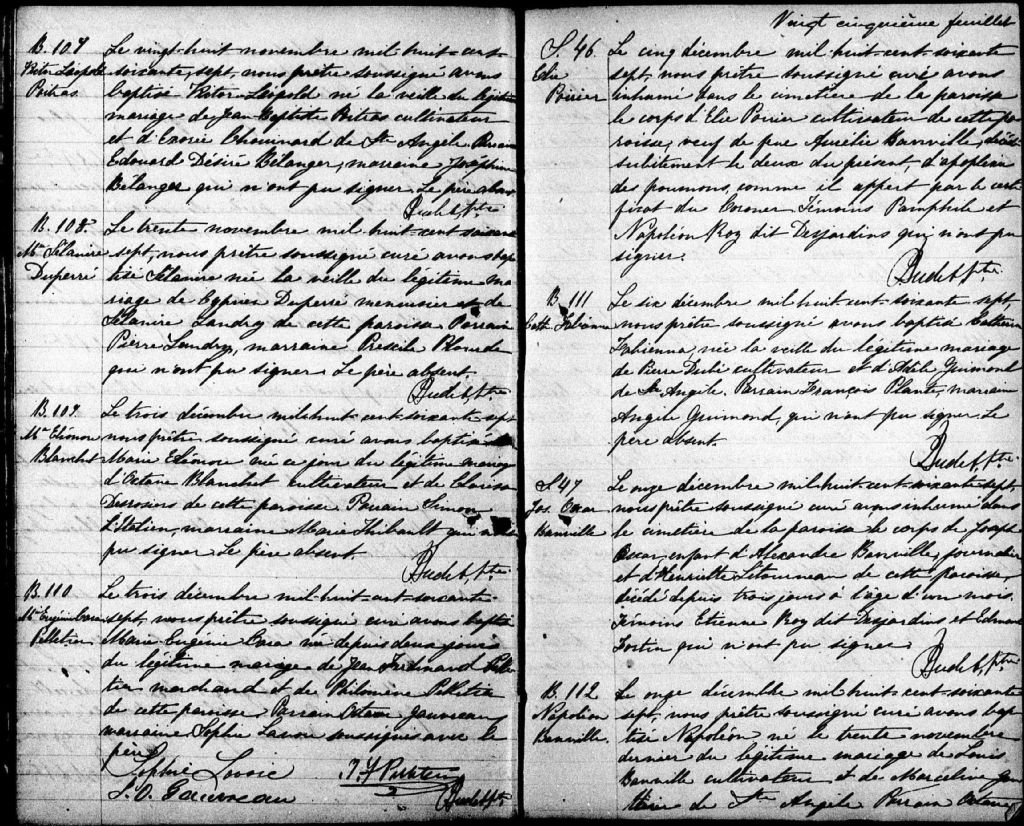 B. 107
Victor Léopold
Poitras
Le vingt-huit novembre mil-huit-cent-
soixante, sept, nous prêtre soussigné avons
baptisé Victor Léopold né la veille du légitime
mariage de Jean-Baptiste Poitras cultivateur
et d'Exorée Chouinard de Ste Angèle Parrain
Edouard Désiré Bélanger, marraine Joséphine
Bélanger qui n'ont pu signer. Le père absent
Audet Ptre
B. 108
Mie Félanire
Duperré
Le trente novembre mil-huit-cent-soixante
sept, nous prêtre soussigné curé avons bap
tisé née la veille du légitime ma
riage de Cyprien Duperré menuisier et de
Landry de cette paroisse Parrain
Pierre Landry, marraine Plourde
qui n'ont pu signer Le père absent.
Audet Ptre
B. 109
Mie Eléonore
Blanchet
Le trois décembre mil-huit-cent-soixante-sept
nous prêtre soussigné curé avons baptisé
Marie Eléonore née ce jour du légitime mariage
d'Octave Blanchet cultivateur et de Clarisse
Desrosiers de cette paroisse Parrain Simon
marraine Marie Thibault qui
pu signer Le père absent
Audet Ptre
B. 110
Mie Eugénie Cora
Pelletier
Le trois décembre mil-huit-cent-soixante-
sept, nous prêtre soussigné curé avons baptisé
Marie Eugénie Cora née depuis deux jours
du légitime mariage de Jean Ferdinand Pelle
tier marchand et de Philomène Pelletier
de cette paroisse Parrain Octave Gauvreau
marraine Sophie Lavoie soussignés avec le
père
Sophie Lavoie J F Pelletier
L. O. Gauvreau Audet Ptre
Vingt cinquième feuillet
S. 46
Elie
Poirier
Le cinq décembre mil huit-cent-soixante
sept, nous prêtre soussigné curé avons
inhumé dans le cimetière de la paroisse
le corps d'Elie Poirier cultivateur de cette pa
roisse, veuf de feue Aurélie Banville, décédé
subitement le deux du présent, d'apoplexie
des poumons, comme il appert par le certi
ficat du Coroner Témoins Pamphile et
Napoléon Roy dit Desjardins qui n'ont pu
signer.
Audet Ptre
B. 111
Cath. Fabienne
Le six décembre mil-huit-cent-soixante sept
nous prêtre soussigné avons baptisé Catherine
Fabienna, née la veille du légitime mariage
de Pierre cultivateur et d'Adèle Guimond
de Ste Angèle. Parrain François Plante, marraine
Angèle Guimond, qui n'ont pu signer. Le
père absent
Audet Ptre
S. 47
Jos. Oscar
Banville
Le onze décembre mil-huit-cent-soixante sept
nous prêtre soussigné curé avons inhumé dans
le cimetière de la paroisse le corps de Joseph
Oscar, enfant d'Alexandre Banville, journalier
et d'Henriette Létourneau de cette paroisse,
décédé depuis trois jours à l'âge d'un mois.
Témoins Etienne Roy dit Desjardins et Edmond
Fortin qui n'ont pu signer
Audet Ptre
B. 112
Napoléon
Banville.
Le onze décembre mil huit-cent-soixante
sept, nous prêtre soussigné curé avons bap
tisé Napoléon né le trente novembre
dernier du légitime mariage de Louis
Banville cultivateur et de Marceline
de Ste Angèle Parrain Octave